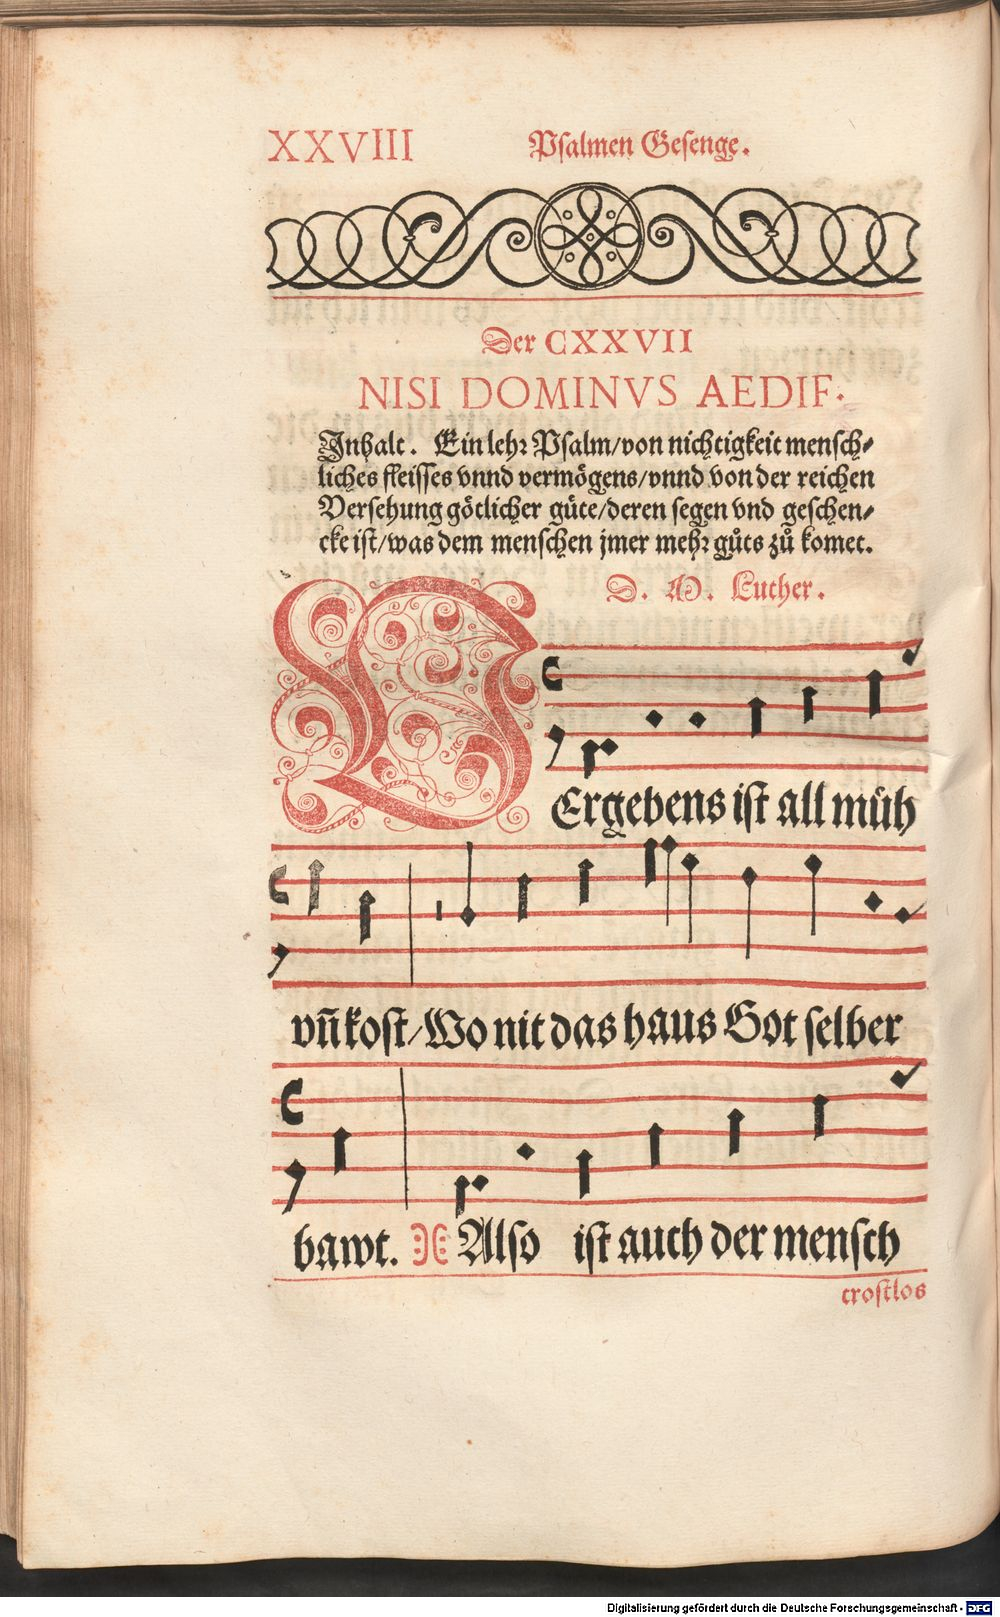 XXVIII Psalmen Gesenge.
Der CXXVII
NISI DOMINVS AEDIF.
Inhalt. Ein lehr Psalm/von nichtigkeit mensch-
liches fleisses vnnd vermögens/vnnd von der reichen
Versehung götlicher güte/deren segen vnd geschen-
cke ist/was dem menschen jmer mehr gůts zů komet.
D. M. Luther.
VErgebens ist all müh
vñ kost/Wo nit das haus Got selber
bawt. Also ist auch der mensch
trostlos
Digitalisierung gefördert durch die Deutsche Forschungsgemeinschaft - DFG